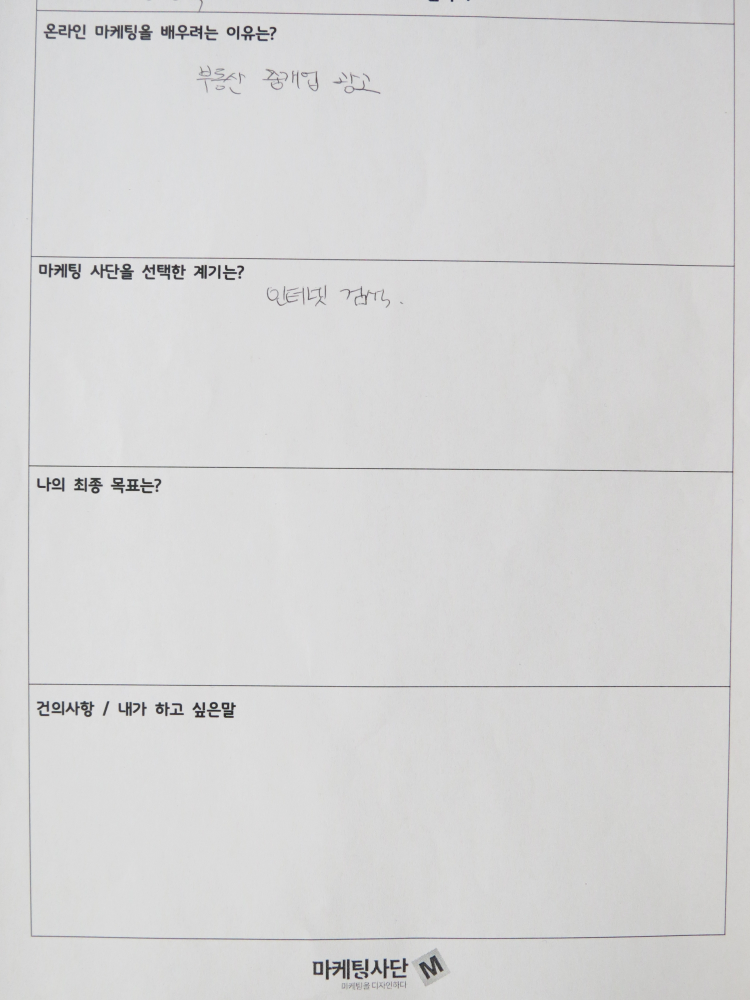 온라인 마케팅을 배우려는 이유는?
부동산 중개업 광고
마케팅 사단을 선택한 계기는?
인터넷 검색.
나의 최종 목표는?
건의사항 / 내가 하고 싶은말
마케팅사단 M
마케팅을 디자인하다